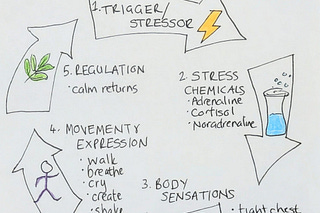 1. TRIGGER/
STRESSOR
2. STRESS
CHEMICALS
• Adrenaline
• Cortisol
• Noradrenaline
3. BODY
SENSATIONS
• tight chest
4. MOVEMENTY
EXPRESSION
• walk
• breathe
• cry
• create
• shake
5. REGULATION
• calm returns